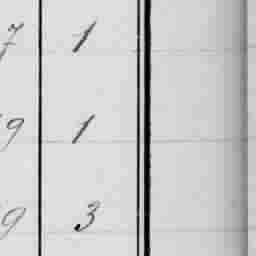 7 1
9 1
9 3